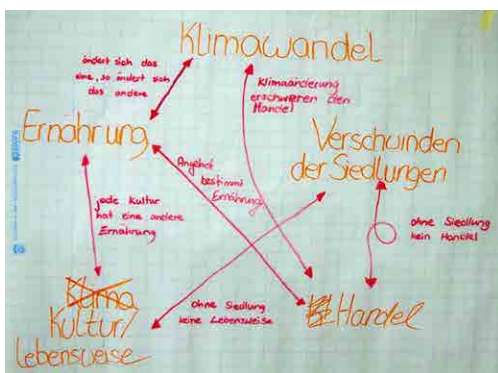 Klimawandel
ändert sich das
eine, so ändert sich
das andere
Klimaänderung
erschweren den
Handel
Ernährung
Verschwinden
der Siedlungen
Angebot
bestimmt
Ernährung
jede Kultur
hat eine andere
Ernährung
ohne Siedlung
kein Handel
ohne Siedlung
keine Lebensweise
Handel
Kultur/
Lebensweise